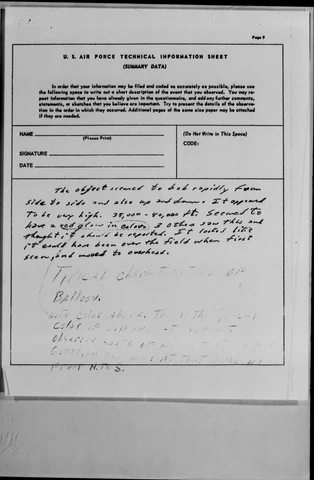 Page 9
U. S. AIR FORCE TECHNICAL INFORMATION SHEET
(SUMMARY DATA)
In order that your information may be filed and coded as accurately as possible, please use
the following space to write out a short description of the event that you observed. You may re-
peat information that you have already given in the questionnaire, and add any further comments,
statements, or sketches that you believe are important. Try to present the details of the observa-
tion in the order in which they occurred. Additional pages of the same size paper may be attached
if they are needed.
NAME
(Please Print)
SIGNATURE
DATE
(Do Not Write in This Space)
CODE:
The object seemed to bob rapidly from
side to side and also up and down. It appeared
to be very high. 35,000 - 40,000 ft. Seemed to
have a red glow in colour. 3 others saw this and
thought it should be reported. It looked like
it could have been over the field when first
seen, and moved to overhead.
Typical characteristics of
Balloon.
Note color above. This is the
color of
observed
from N.